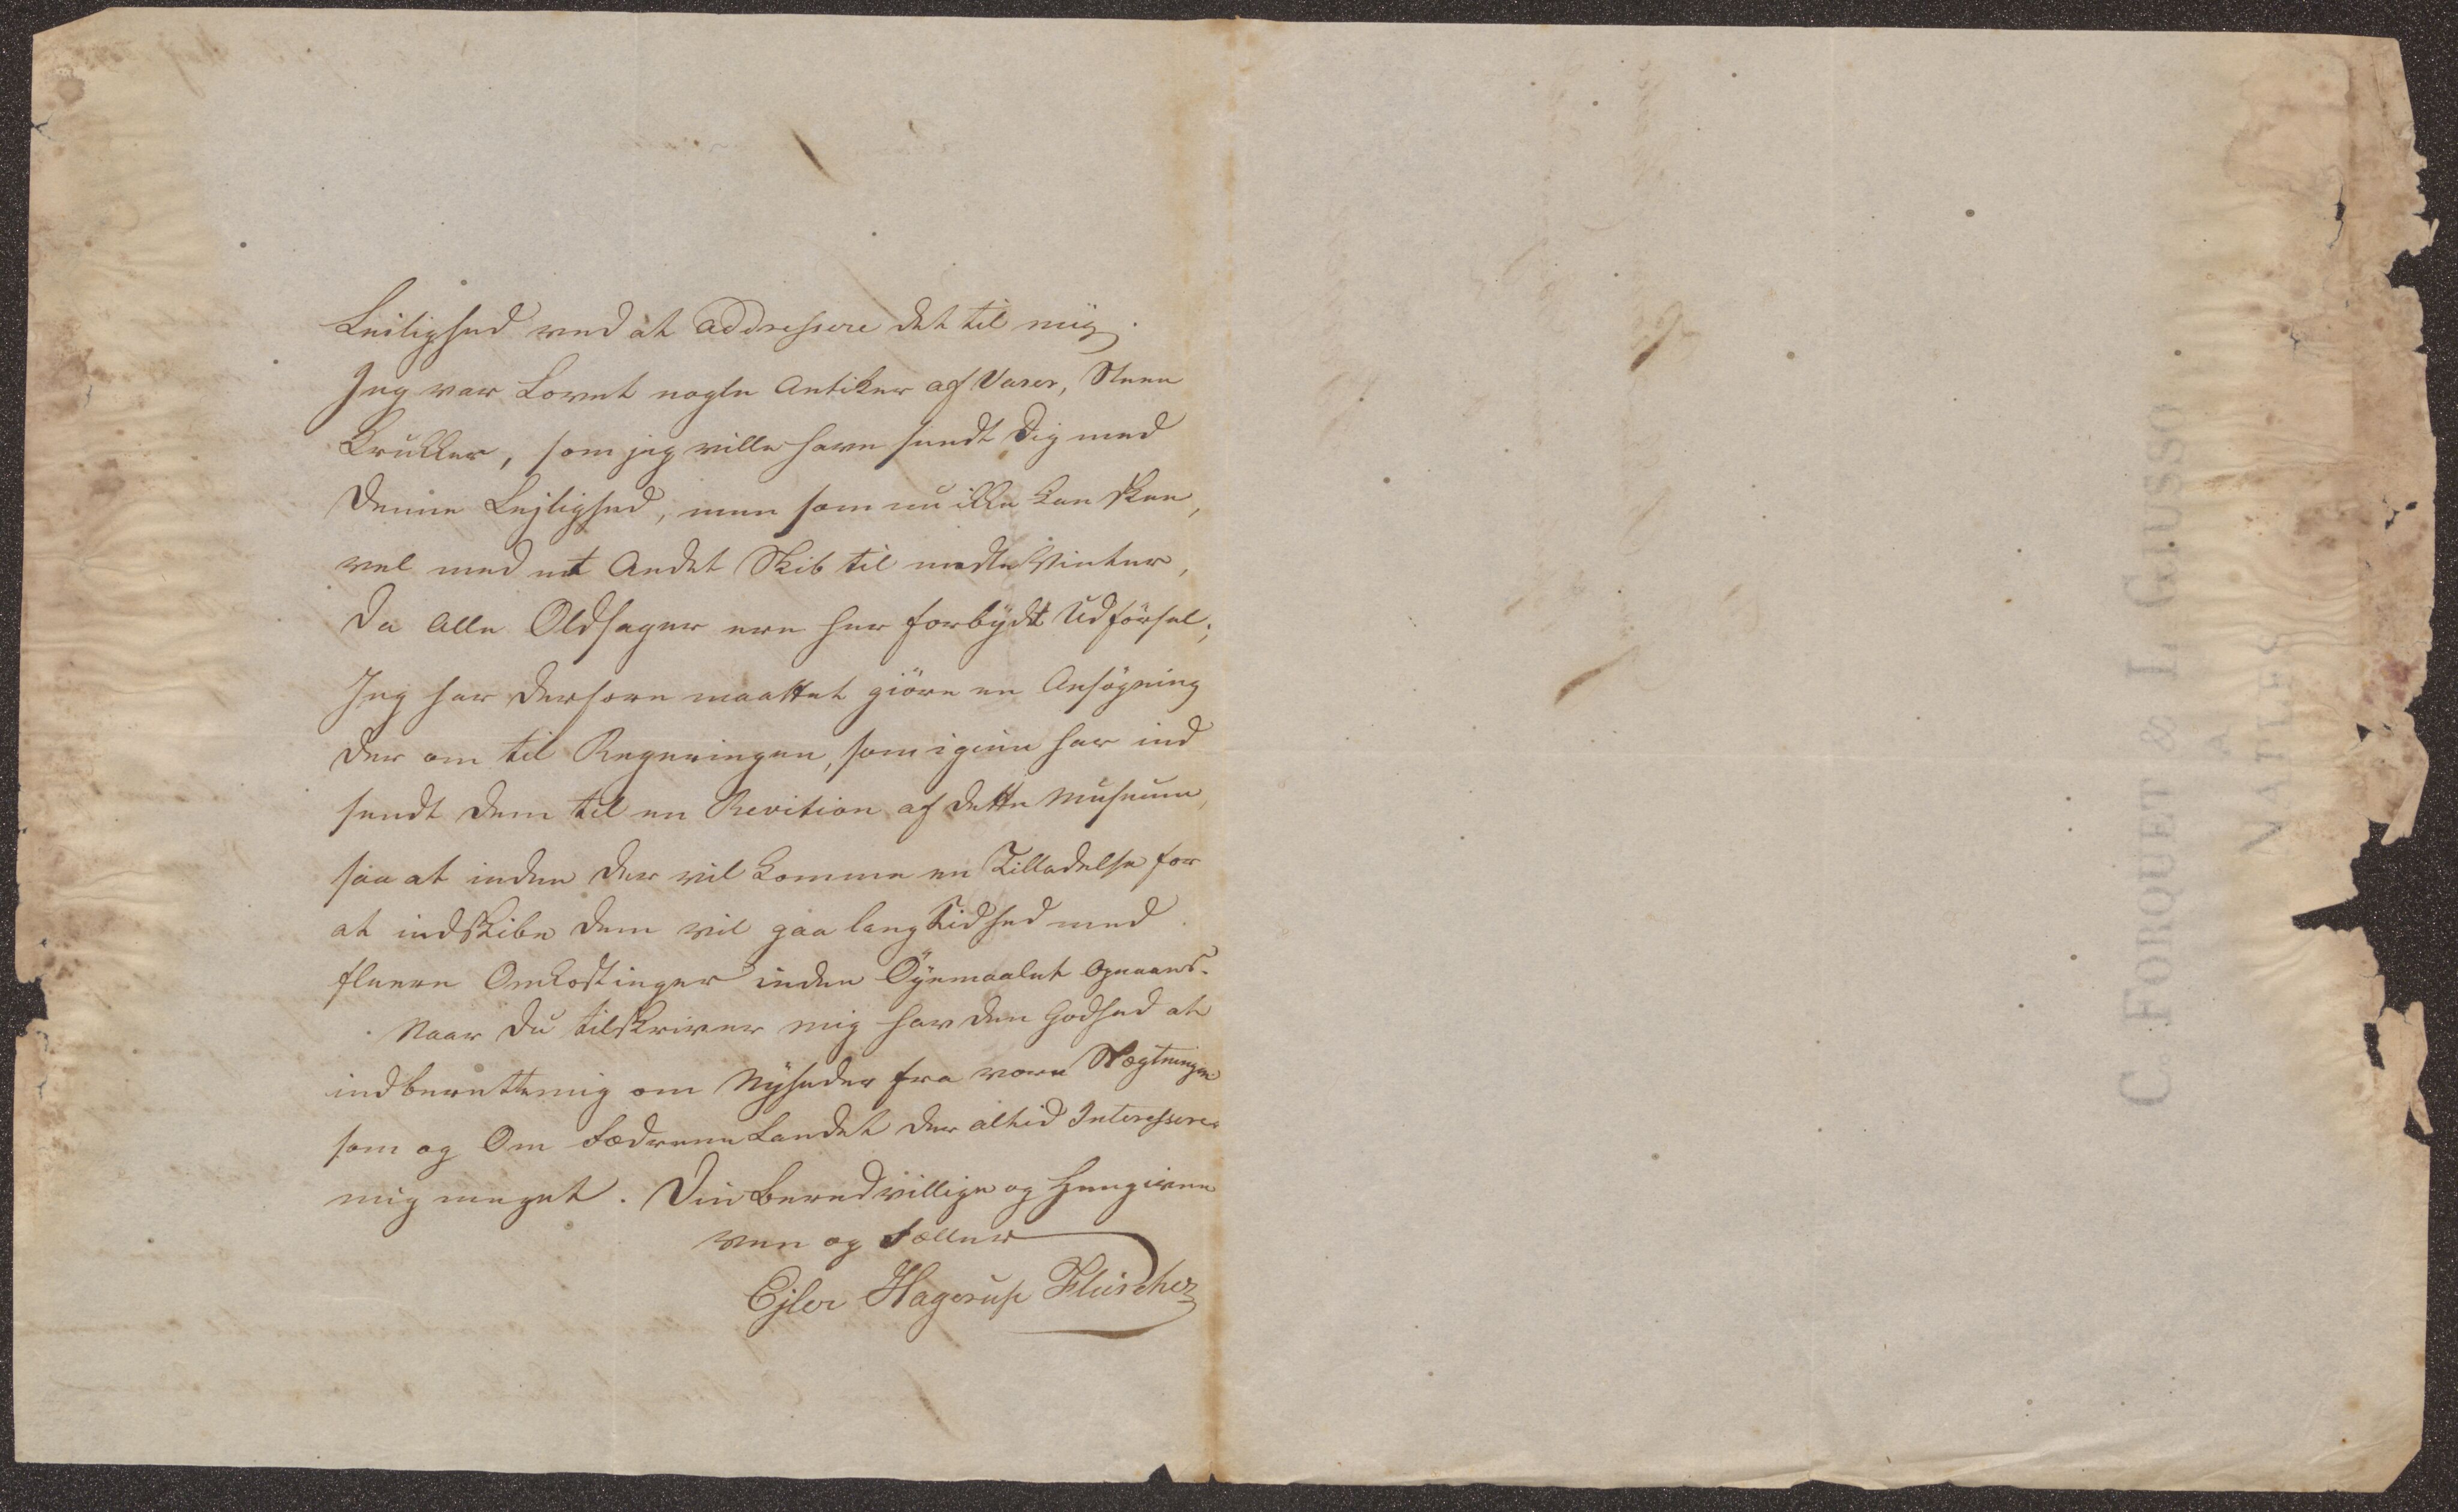 Leilighed ved at addressere det til mig.
Jeg var Lovet nogle Antiker af Vaser, Steen
Krukker, som jeg ville have sendt Dig med
denne Lejlighed, men som nu ikke kan skee,
vel med et Andet Skib til neste Vinter,
da Alle Oldsager ere her forbÿdt Udförsel;
Jeg har derfore maattet giöre en Ansögning
der om til Regeringen, som igien har ind
sendt dem til en Revition af dette Museum,
saa at inden der vil komme en Tilladelse for
at indskibe dem vil gaa lang Tid hed med
fleere Omkostinger inden Öÿemaalet Opnaaes.
Naar Du tilskriver mig hav den Godhed at
indberette mig om Nÿheder fra vore Slægtninge
som og Om Fædrene Landet der altid Interessere
mig meget. Din Beredvillige og Hengivne
Ven og Fætter
Ejler Hagerup Fleischer
C. FORQUET & L. GIUSSO
A
NAPLES